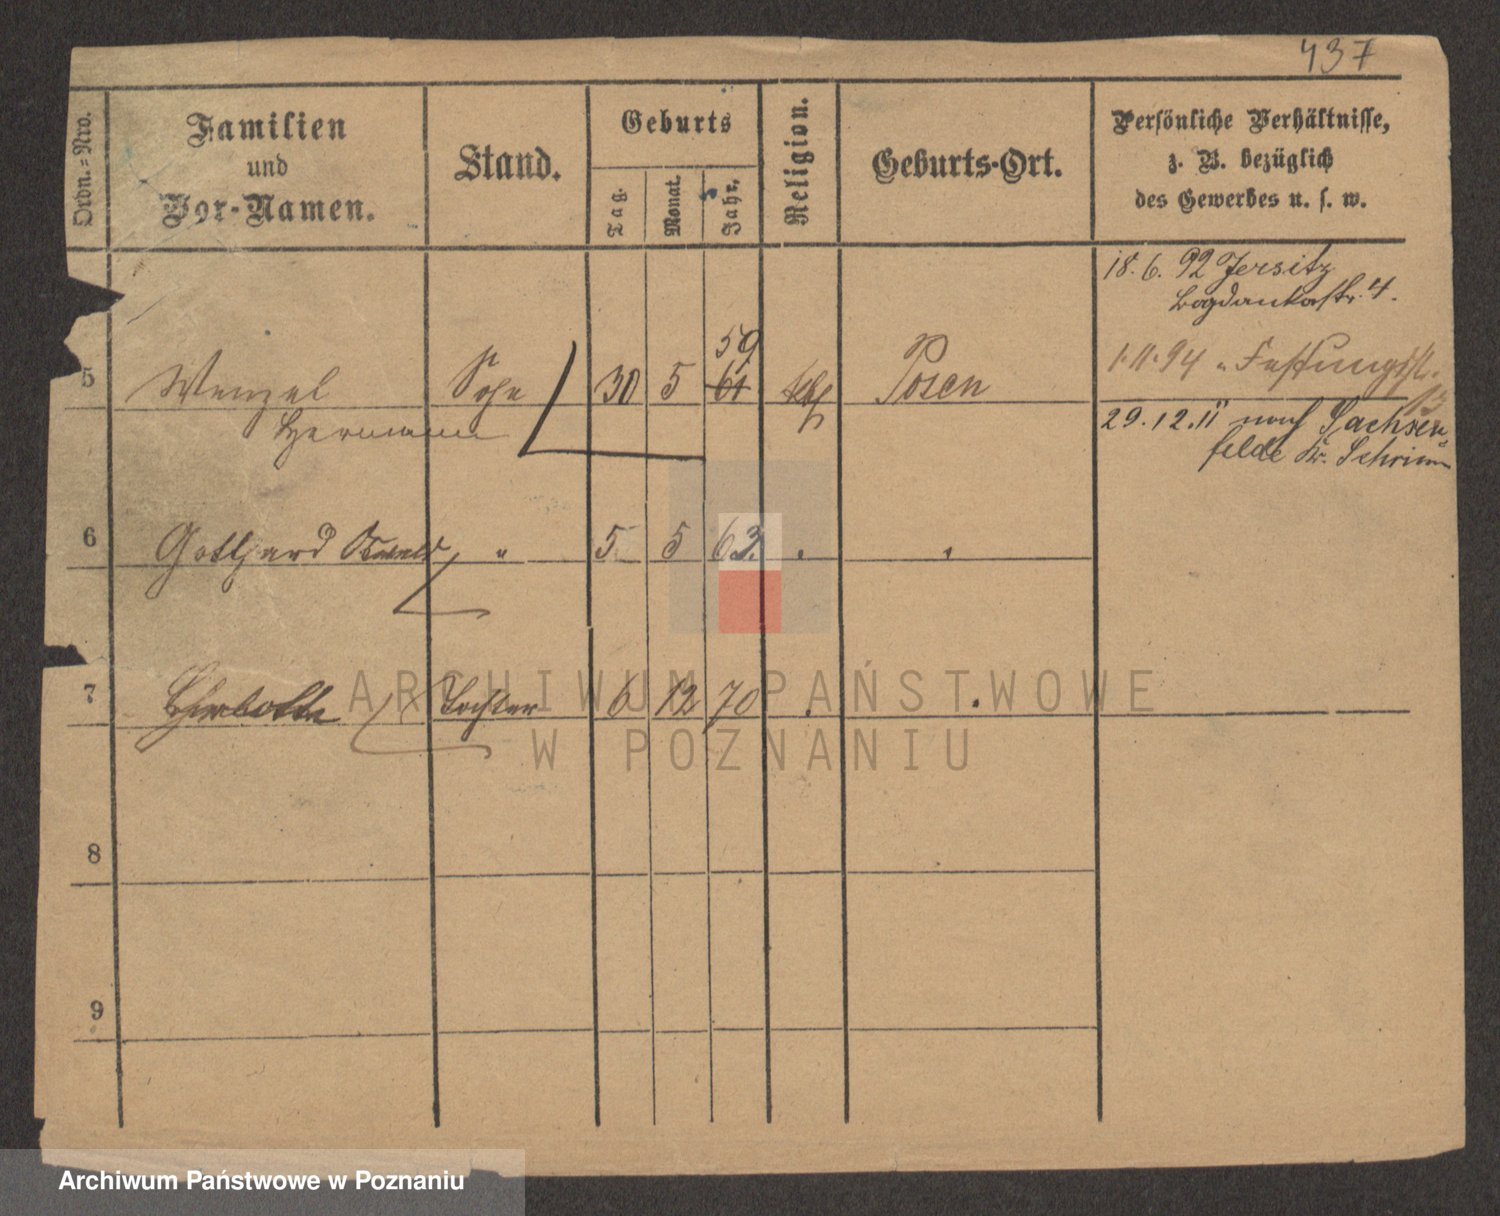 437
Ordn.=Nro.
Familien
und
Vor-Namen.
Stand.
Geburts
Tag.
Monat.
Jahr.
Religion.
Geburts-Ort.
Persönliche Verhältnisse,
z. B. bezüglich
des Gewerbes u. s. w.
18. 6. 92 Jersitz
Bogdankastr. 4.
59
5 Wenzel Sohn 30 5 61 kath Posen
1.11.94 " Festungsstr.
13
Hermann
29.12.11 nach Sachsen-
felde Kr. Schrimm
6 Gotthard Oswald " 5 5 63. " "
7 Tochter 6 12 70 " "
8
9
ARCHIWUM PAŃSTWOWE
W POZNANIU
Archiwum Państwowe w Poznaniu